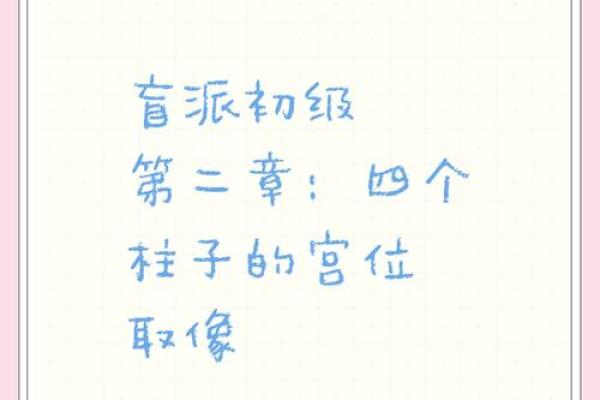 盲派初级
第二章：四个
柱子的宫位
取像